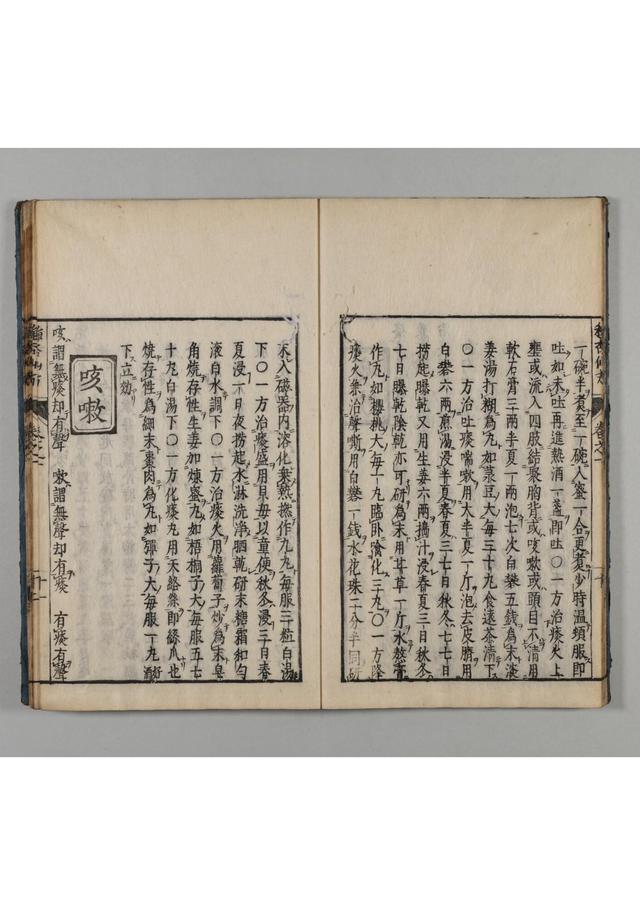 一碗半煮至一碗入蜜一合更煮少時温頓服即
吐如未吐再進熱消一盞即吐〇一方治痰火上
壅或流入四肢結聚胸背或咳嗽或頭目不清用
軟石膏三兩半夏一兩泡七次白礬五錢為末淡
姜湯打糊為丸如菉豆大每三十丸食遠茶清下
〇一方治吐痰喘嗽用大半夏一斤泡去皮臍用
白礬六兩煎湯浸半夏春夏三七日秋冬七七日
撈起曝乾又用生姜六兩搗汁浸春夏三日秋冬
七日曝乾陰乾亦可研為末用甘草一斤水熬膏
作丸如櫻桃大每一丸臨卧噙化三九〇一方降
痰火兼治聲嘶用白礬一錢水花珠二分半同研
末入磁器内溶化乗熱撚作丸每服三粒白湯
下〇一方治痰盛用貝母以童便秋冬浸三日春
夏浸一日夜撈起水淋洗淨晒乾研末糖霜和匀
滚白水調下〇一方治痰火用蘿蔔子炒為末皂
角燒存性生姜如煉蜜丸如梧桐子大每服五七
十丸白湯下〇一方化痰丸用天絡絲即絲瓜也
燒存性為細末棗肉為丸如彈子大每服一丸酒
下立効
咳嗽
咳謂無痰却有聲 嗽謂無聲却有痰 有痰有聲